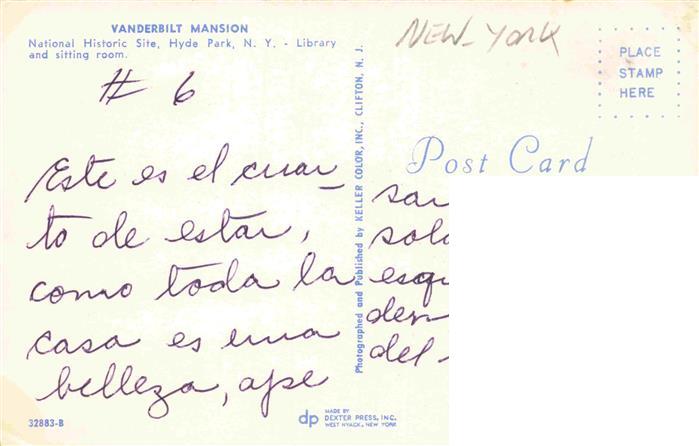 VANDERBILT MANSION
National Historic Site, Hyde Park, N. Y. - Library
and sitting room.
# 6
Este es el cuar_
to de estar,
como toda la
casa es una
belleza, ape
32883-B
Photographed and Published by KELLER COLOR, INC., CLIFTON, N. J.
dp MADE BY
DEXTER PRESS, INC.
WEST NYACK, NEW YORK
NEW-YORK
PLACE
STAMP
HERE
Post Card
del